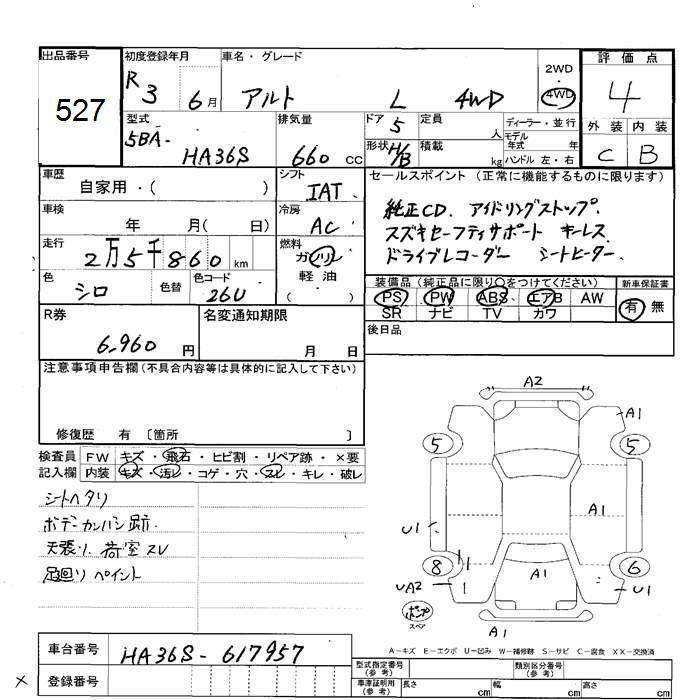 出品番号
527
初度登録年月
R3 6月
車名・グレード
アルト L 4WD
2WD
4WD
評価点
4
外装 内装
C B
型式
5BA-
HA36S
排気量
660 cc
ドア 5
形状 H/B
定員 人
積載 kg
ディーラー・並行
モデル年式 年
ハンドル 左・右
車歴
自家用・( )
シフト
IAT
セールスポイント (正常に機能するものに限ります)
純正CD. アイドリングストップ.
スズキセーフティサポート キーレス
ドライブレコーダー シートヒーター.
車検
年 月( 日)
冷房
AC
走行
2万5千860km
燃料
ガソリン
軽油
( )
色
シロ
色替
色コード
26U
装備品 (純正品に限り○をつけてください)
PS PW ABS エアB AW
SR ナビ TV カワ
新車保証書
有 無
R券
6,960 円
名変通知期限
月 日
後日品
注意事項申告欄 (不具合内容等は具体的に記入して下さい)
修復歴 有 〔箇所 〕
検査員
記入欄
FW キズ・飛石・ヒビ割・リペア跡・×要
内装 キズ・汚レ・コゲ・穴・スレ・キレ・破レ
シートヘタリ
ボデーカンバン跡
天張り. 荷室スレ
足回りペイント
A2
A1
5
5
A1
U1
8
6
A1
UA2
U1
ポンプ
スペア
A1
A-キズ E-エクボ U-凹み W-補修跡 S-サビ C-腐食 XX-交換済
車台番号
HA36S-617957
登録番号
×
型式指定番号
(参考)
類別区分番号
(参考)
車庫証明用
(参考)
長さ cm
幅 cm
高さ cm